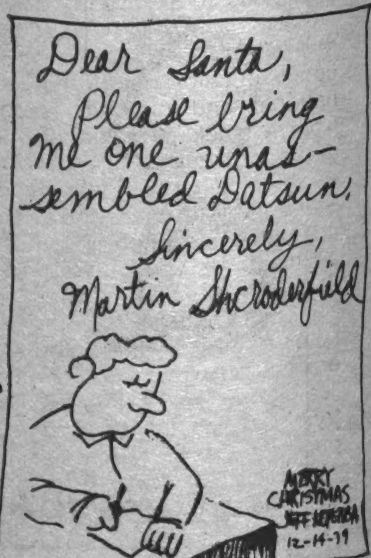 Dear Santa,
Please bring
me one unas-
sembled Datsun.
Sincerely,
Martin Shcroderfield
MERRY
CHRISTMAS
JEFF
12-14-79